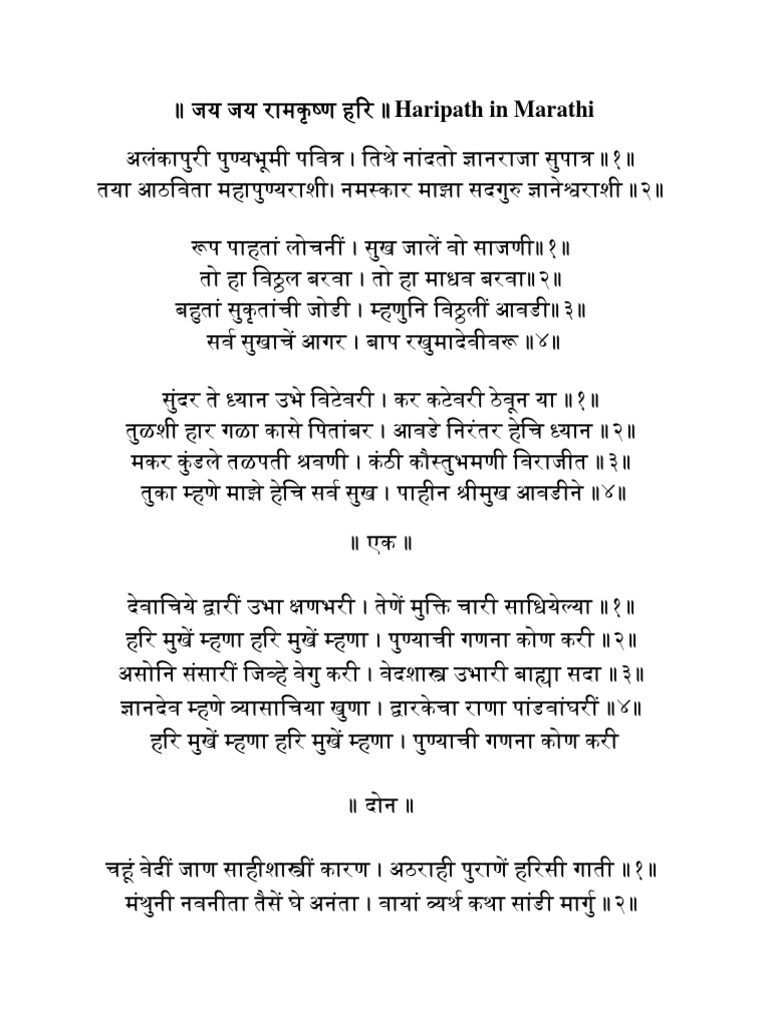 ॥ जय जय रामकृष्ण हरि ॥ Haripath in Marathi
अलंकापुरी पुण्यभूमी पवित्र । तिथे नांदतो ज्ञानराजा सुपात्र ॥१॥
तया आठविता महापुण्यराशी। नमस्कार माझा सदगुरु ज्ञानेश्वराशी ॥२॥
रूप पाहतां लोचनीं । सुख जालें वो साजणी॥१॥
तो हा विठ्ठल बरवा । तो हा माधव बरवा॥२॥
बहुतां सुकृतांची जोडी । म्हणुनि विठ्ठलीं आवडी॥३॥
सर्व सुखाचें आगर । बाप रखुमादेवीवरू ॥४॥
सुंदर ते ध्यान उभे विटेवरी । कर कटेवरी ठेवून या ॥१॥
तुळशी हार गळा कासे पितांबर । आवडे निरंतर हेचि ध्यान ॥२॥
मकर कुंडले तळपती श्रवणी । कंठी कौस्तुभमणी विराजीत ॥३॥
तुका म्हणे माझे हेचि सर्व सुख । पाहीन श्रीमुख आवडीने ॥४॥
॥ एक ॥
देवाचिये द्वारीं उभा क्षणभरी । तेणें मुक्ति चारी साधियेल्या ॥१॥
हरि मुखें म्हणा हरि मुखें म्हणा । पुण्याची गणना कोण करी ॥२॥
असोनि संसारीं जिव्हे वेगु करी । वेदशास्त्र उभारी बाह्या सदा ॥३॥
ज्ञानदेव म्हणे व्यासाचिया खुणा । द्वारकेचा राणा पांडवांघरीं ॥४॥
हरि मुखें म्हणा हरि मुखें म्हणा । पुण्याची गणना कोण करी
॥ दोन ॥
चहूं वेदीं जाण साहीशास्त्रीं कारण । अठराही पुराणें हरिसी गाती ॥१॥
मंथुनी नवनीता तैसें घे अनंता । वायां व्यर्थ कथा सांडी मार्गु ॥२॥